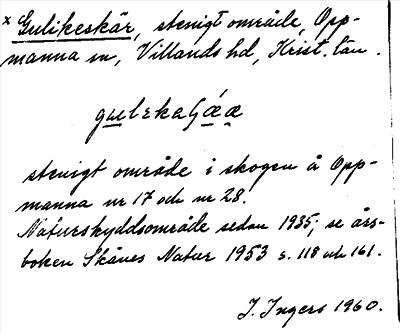 x Gulikeskär, stenigt område, Opp-
manna sn, Villands hd, Krist. län.
stenigt område i skogen å Opp-
manna nr 17 och nr 28.
Naturskyddsområde sedan 1935, se års-
boken Skånes Natur 1953 s. 118 och 161.
J. Ingers 1960.